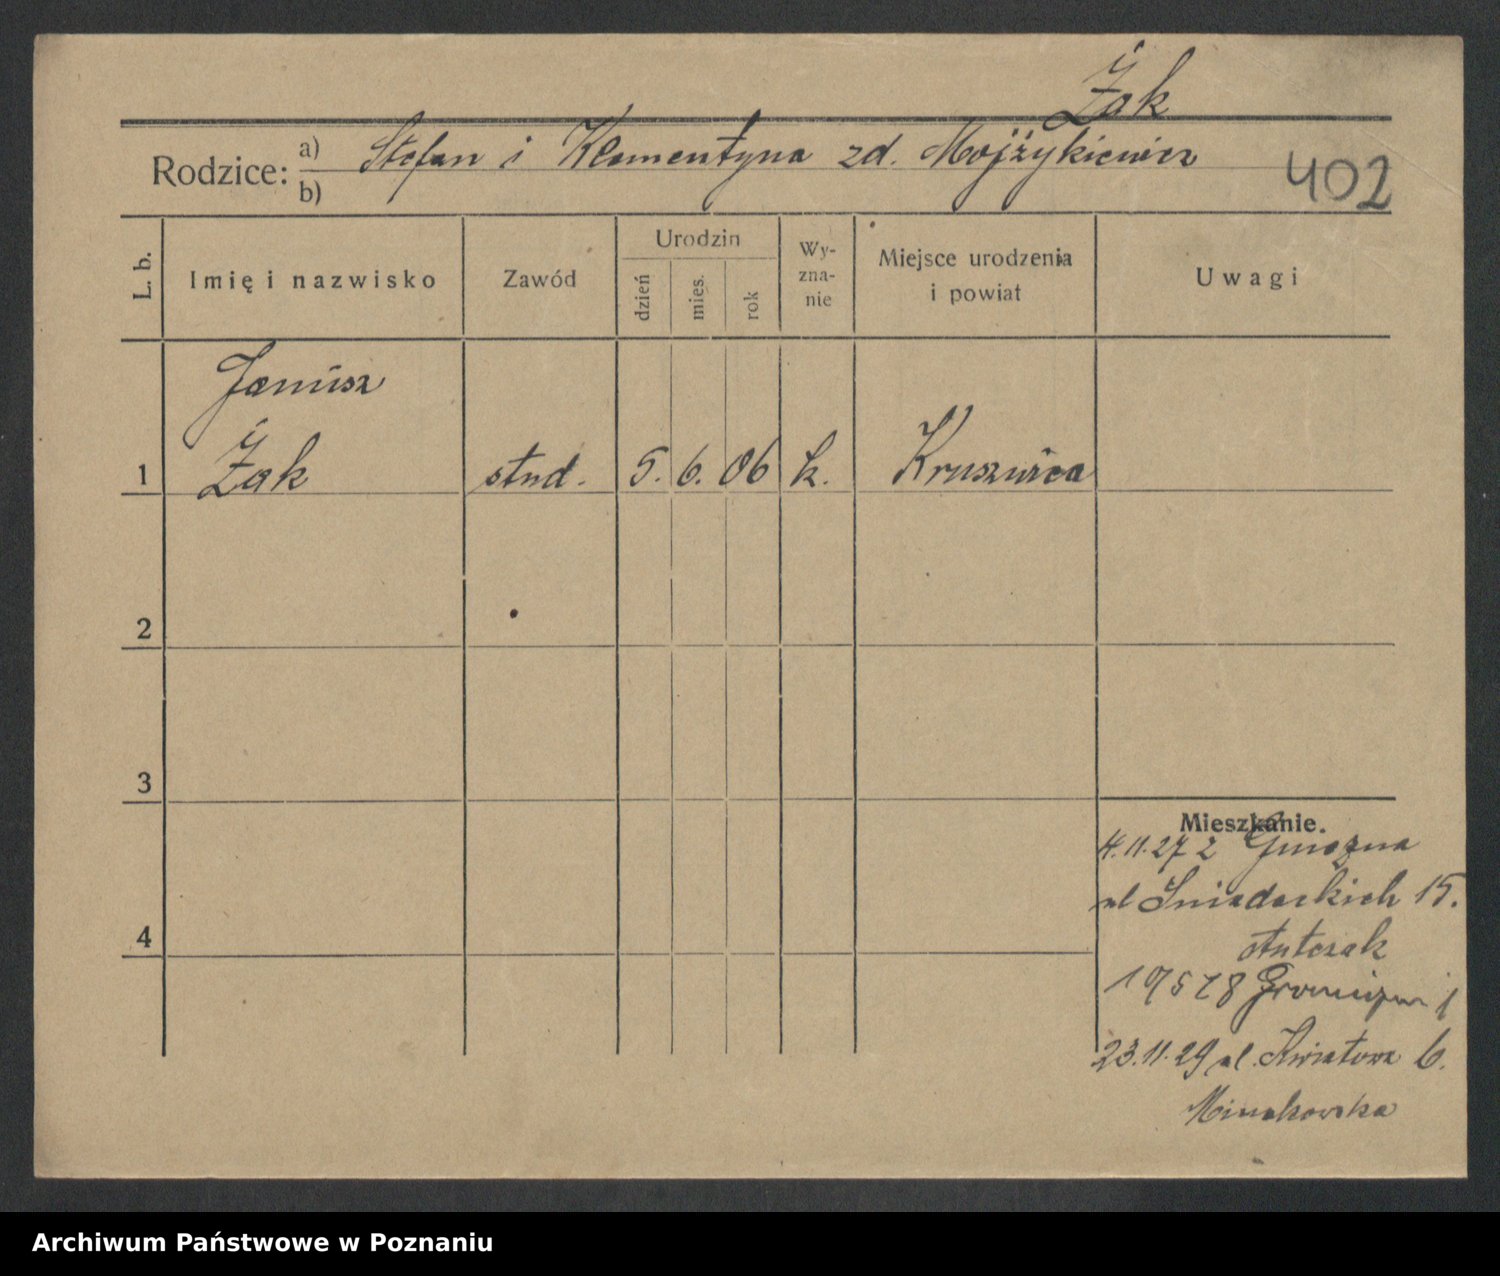 Żak
Rodzice: a) Stefan i Klementyna zd. Mojżykiewicz
b)
402
L. b. Imię i nazwisko Zawód Urodzin dzień mies. rok Wy-zna-nie Miejsce urodzenia i powiat Uwagi
Janusz
1 Żak stud. 5. 6. 06 k. Kruszwica
2
3
Mieszkanie.
4.11.27 z Gniezna
ul Śniadeckich 15.
4
Antczak
19 5 28
23.11.29 ul. Kwiatowa 6.
Archiwum Państwowe w Poznaniu